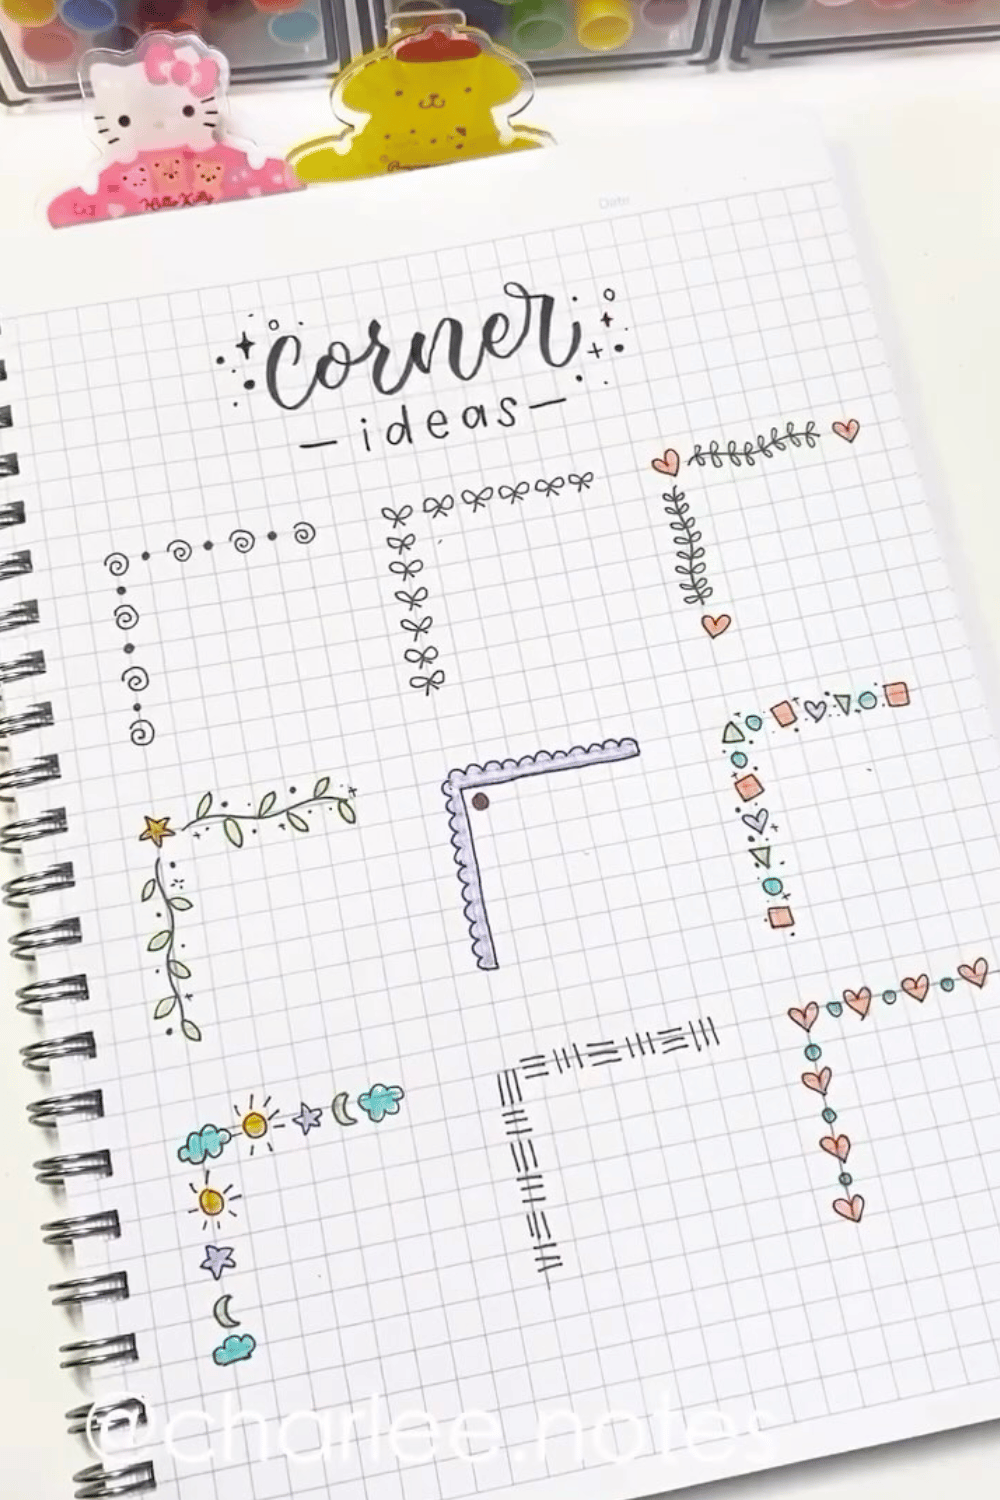 Hello Kitty
Date
corner
- ideas -
@charlee.notes